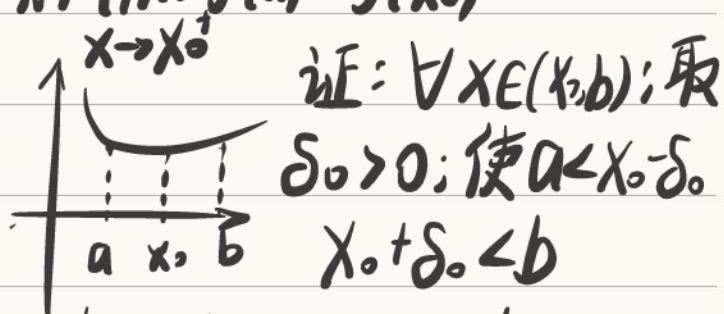 x→x₀⁺
证：∀x∈(x₀,b)；取
δ₀>0；使a<x₀-δ₀
x₀+δ₀<b
a x₀ b